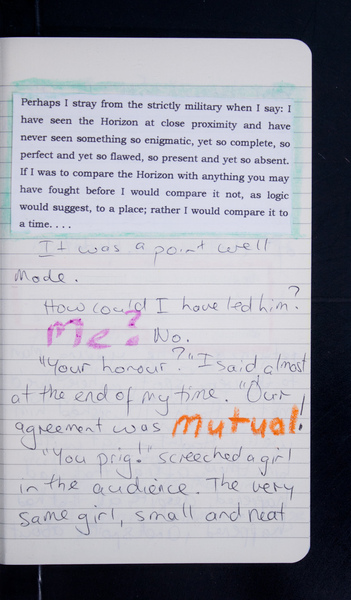 Perhaps I stray from the strictly military when I say: I
have seen the Horizon at close proximity and have
never seen something so enigmatic, yet so complete, so
perfect and yet so flawed, so present and yet so absent.
If I was to compare the Horizon with anything you may
have fought before I would compare it not, as logic
would suggest, to a place; rather I would compare it to
a time. . . .
It was a point well
made.
How could I have led him?
Me? No.
"Your honour?" I said almost
at the end of my time. "Our
agreement was mutual!
"You prig!" screeched a girl
in the audience. The very
same girl, small and neat